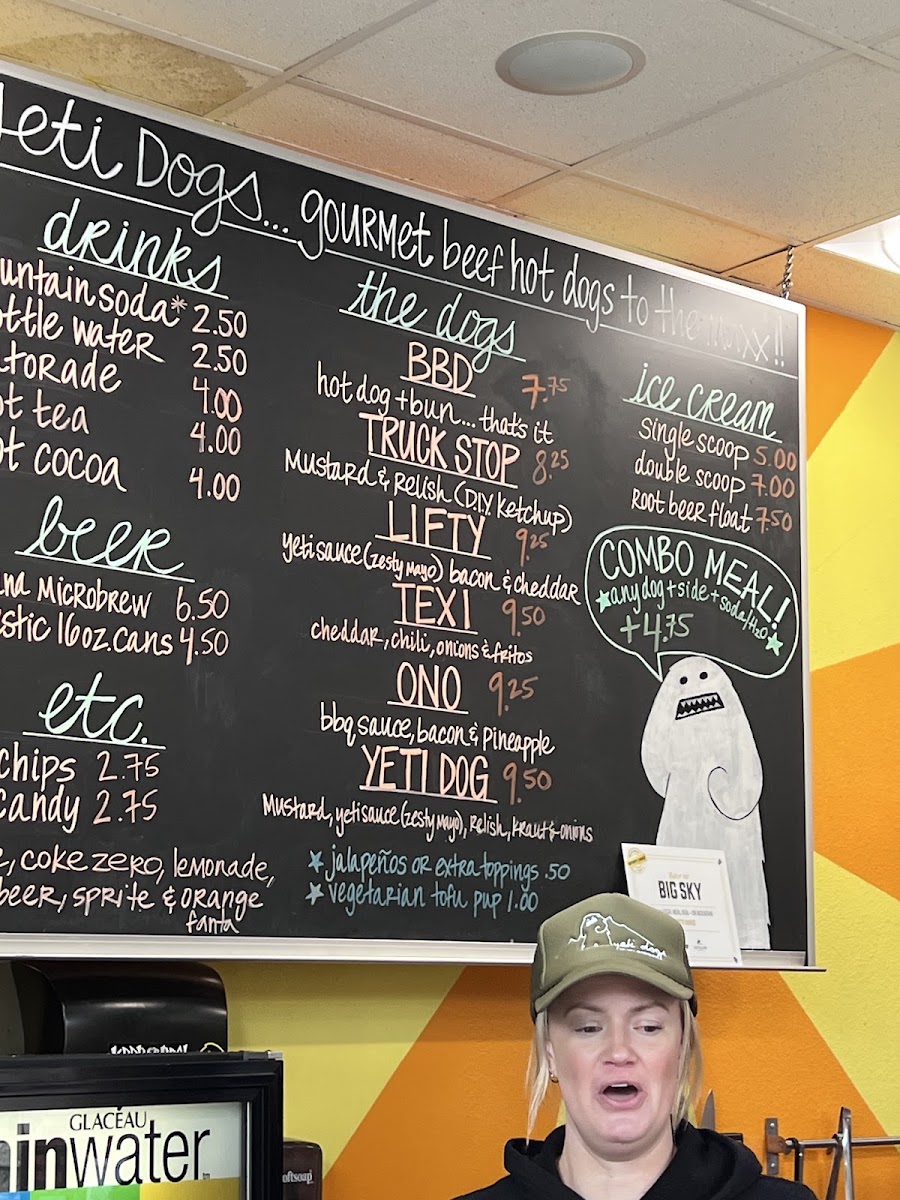 Yeti Dogs... gourmet beef hot dogs to the maxx!!
drinks
untain soda* 2.50
ottle water 2.50
torade 4.00
ot tea 4.00
ot cocoa 4.00
beer
ana Microbrew 6.50
estic 16oz. cans 4.50
etc.
chips 2.75
candy 2.75
e, coke zero, lemonade,
beer, sprite & orange
fanta
the dogs
BBD 7.75
hot dog + bun... that's it
TRUCK STOP 8.25
Mustard & Relish (D.I.Y. Ketchup)
LIFTY 9.25
yeti sauce (zesty mayo) bacon & cheddar
TEXI 9.50
cheddar, chili, onions & fritos
ONO 9.25
bbq sauce, bacon & pineapple
YETI DOG 9.50
Mustard, yeti sauce (zesty mayo), Relish, kraut & onions
★ jalapeños or extra toppings .50
★ vegetarian tofu pup 1.00
ice cream
Single scoop 5.00
double scoop 7.00
Root beer float 7.50
COMBO MEAL!
★ any dog + side + soda/H2O ★
+4.75
BIG SKY
yeti dogs
GLACÉAU
inwater
oftsoap